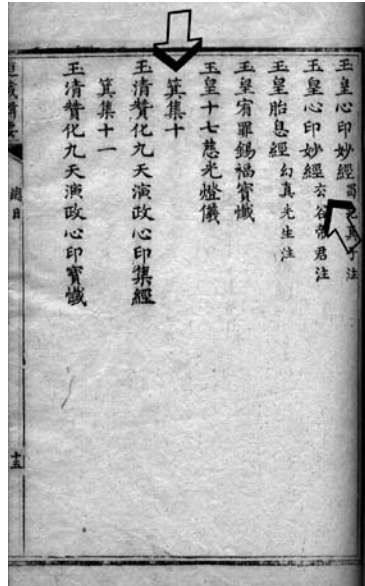 玉皇心印妙經 真子注
玉皇心印妙經 玄谷帝君注
玉皇胎息經 幻真先生注
玉皇宥罪錫福寶懺
玉皇十七慈光燈儀
箕集十
玉清贊化九天演政心印集經
箕集十一
玉清贊化九天演政心印寶懺
總目
十五